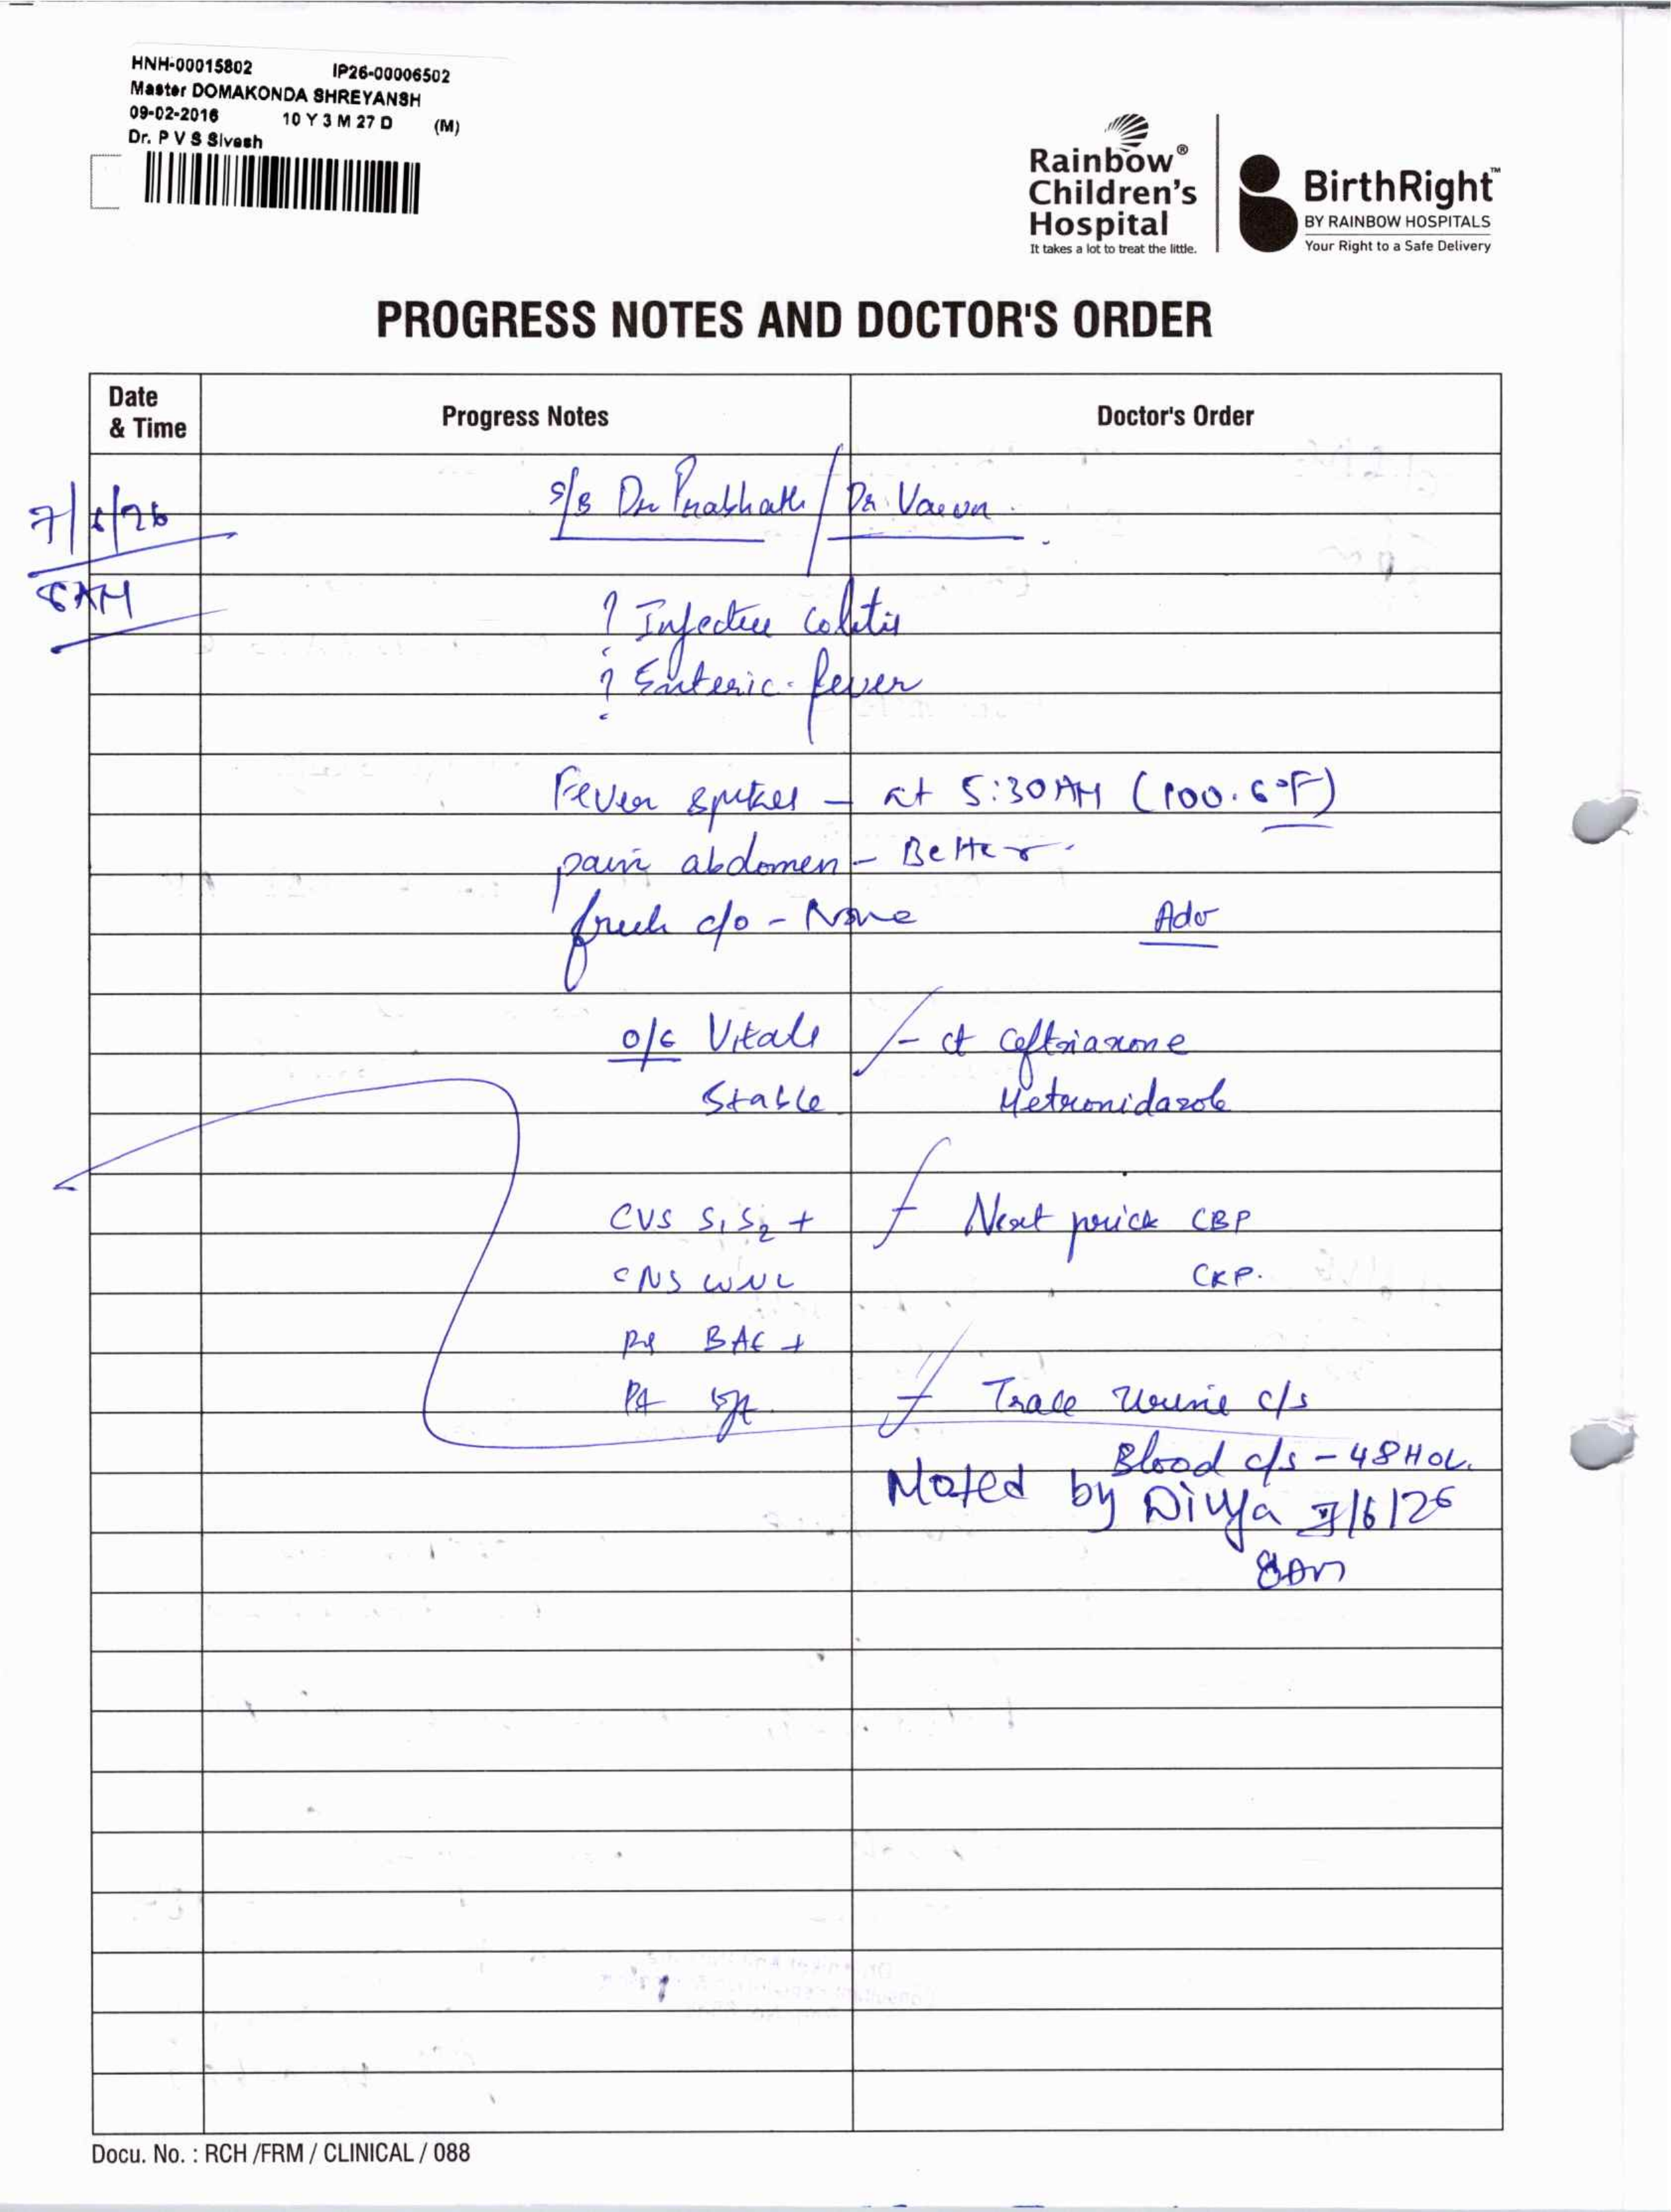 HNH-00015802 IP26-00006502
Master DOMAKONDA SHREYANSH
09-02-2016 10 Y 3 M 27 D (M)
Dr. P V S Sivesh
Rainbow®
Children's
Hospital
It takes a lot to treat the little.
BirthRight™
BY RAINBOW HOSPITALS
Your Right to a Safe Delivery
PROGRESS NOTES AND DOCTOR'S ORDER
Date
& Time
Progress Notes
Doctor's Order
7/6/26
S/B Dr Prabhath / Dr. Varun
8AM
? Infective colitis
? Enteric fever
Fever spikes - at 5:30AM (100.6°F)
pain abdomen - Better
fresh c/o - None
Adv
o/e Vitals
Stable
- ct Ceftriaxone
Metronidazole
CVS S1 S2 +
Next prick CBP
CNS WNL
CRP.
RS BAE +
PA soft
Trace Urine c/s
Blood c/s - 48 Hol.
Noted by Divya 7/6/26
8am
Docu. No. : RCH /FRM / CLINICAL / 088